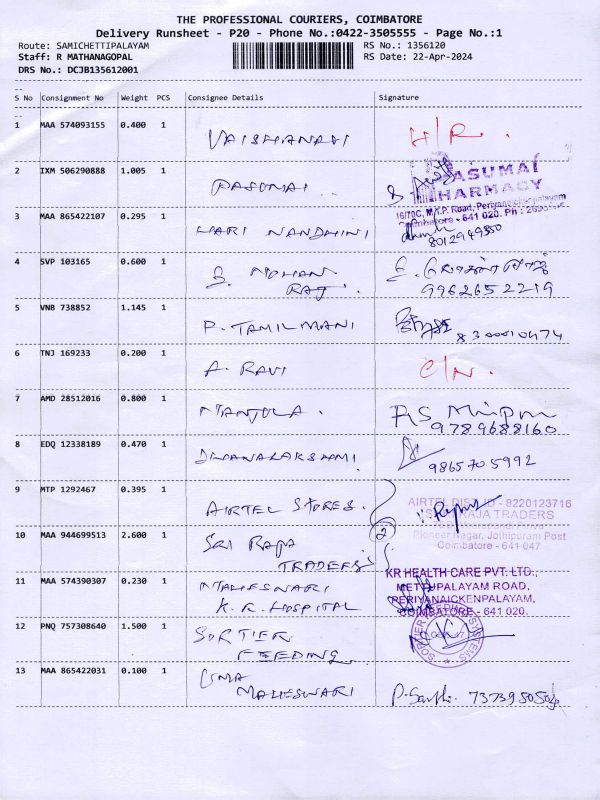 THE PROFESSIONAL COURIERS, COIMBATORE
Delivery Runsheet - P20 - Phone No.:0422-3505555 - Page No.:1
Route: SAMICHETTIPALAYAM RS No.: 1356120
Staff: R MATHANAGOPAL RS Date: 22-Apr-2024
DRS No.: DCJB135612001
S No Consignment No Weight PCS Consignee Details Signature
1 MAA 574093155 0.400 1 VAISHANAVI H/R.
2 IXM 506290888 1.005 1 PASUMAI PASUMAI
PHARMACY
16/70C, M.T.P. Road, Periyanaickenpalayam
Coimbatore - 641 020. Ph :
3 MAA 865422107 0.295 1 HARI NANDHINI
8012949350
4 SVP 103165 0.600 1 S. MOHAN
RAJ. 9962652219
5 VNB 738852 1.145 1 P. TAMILMANI 8300010474
6 TNJ 169233 0.200 1 A. RAVI C/N.
7 AMD 28512016 0.800 1 MANJULA.
9789688160
8 EDQ 12338189 0.470 1 DHANALAKSHMI
9865705992
9 MTP 1292467 0.395 1 AIRTEL STORES. AIRTEL DIST ID - 8220123716
RAJA TRADERS
Pioneer Nagar, Jothipuram Post
Coimbatore - 641 047
10 MAA 944699513 2.600 1 SRI RAJA
TRADERS 2
11 MAA 574390307 0.230 1 MAHESWARI
K.R. HOSPITAL
KR HEALTH CARE PVT. LTD.,
METTUPALAYAM ROAD,
PERIYANAICKENPALAYAM,
COIMBATORE - 641 020.
12 PNQ 757308640 1.500 1 SORTIER
FEEDING
13 MAA 865422031 0.100 1 UMA
MAHESWARI